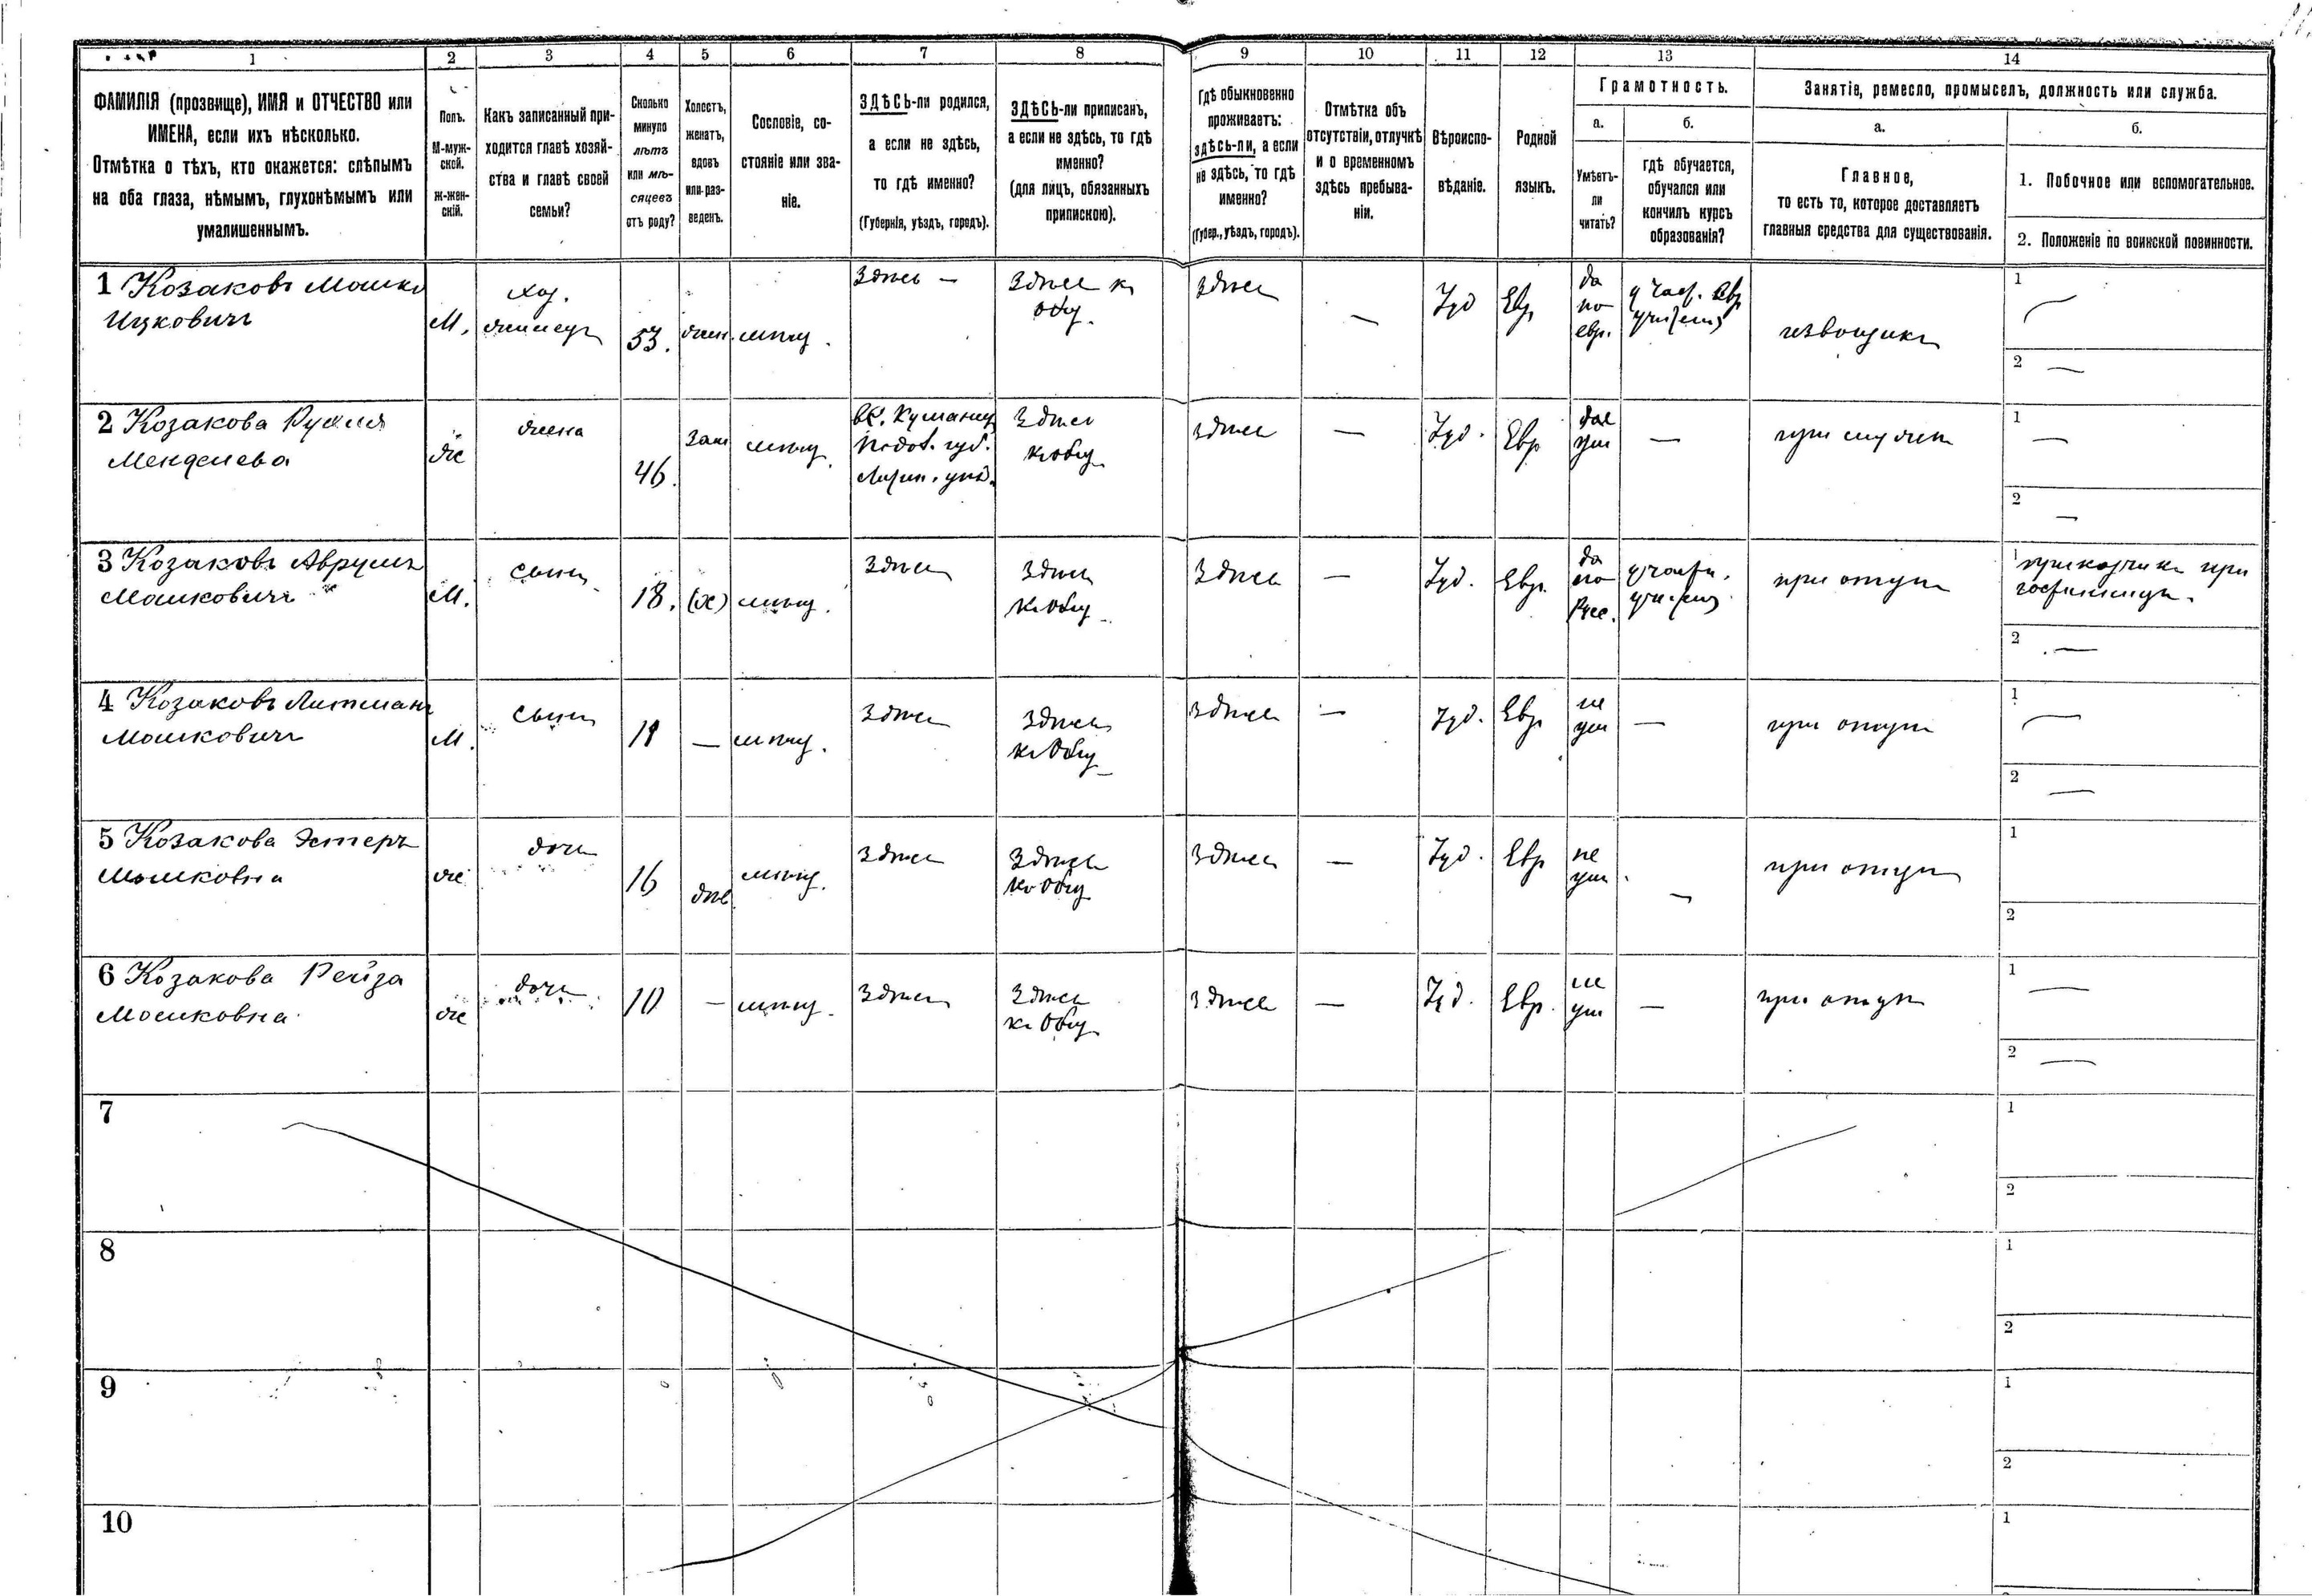 1 2 3 4 5 6 7 8 9 10 11 12 13 14
ФАМИЛІЯ (прозвище), ИМЯ и ОТЧЕСТВО или
ИМЕНА, если ихъ нѣсколько.
Отмѣтка о тѣхъ, кто окажется: слѣпымъ
на оба глаза, нѣмымъ, глухонѣмымъ или
умалишеннымъ.
Полъ.
М-муж-
ской.
Ж-жен-
скій.
Какъ записанный при-
ходится главѣ хозяй-
ства и главѣ своей
семьи?
Сколько
минуло
лѣтъ
или мѣ-
сяцевъ
отъ роду?
Холостъ,
женатъ,
вдовъ
или раз-
веденъ.
Сословіе, со-
стояніе или зва-
ніе.
ЗДѢСЬ-ли родился,
а если не здѣсь,
то гдѣ именно?
(Губернія, уѣздъ, городъ).
ЗДѢСЬ-ли приписанъ,
а если не здѣсь, то гдѣ
именно?
(для лицъ, обязанныхъ
припискою).
Гдѣ обыкновенно
проживаетъ:
здѣсь-ли, а если
не здѣсь, то гдѣ
именно?
(Губер., уѣздъ, городъ).
Отмѣтка объ
отсутствіи, отлучкѣ
и о временномъ
здѣсь пребыва-
ніи.
Вѣроиспо-
вѣданіе.
Родной
языкъ.
Грамотность.
а.
Умѣетъ-
ли
читать?
б.
гдѣ обучается,
обучался или
кончилъ курсъ
образованія?
Занятіе, ремесло, промыселъ, должность или служба.
а.
Главное,
то есть то, которое доставляетъ
главныя средства для существованія.
б.
1. Побочное или вспомогательное.
2. Положеніе по воинской повинности.
1 Козаковъ Мошко
Ицковичъ
М.
хоз.
53.
жен.
мѣщ.
здѣсь —
здѣсь къ
общ.
здѣсь
—
Іуд
Евр
да
по
евр.
извощикъ
1 —
2 —
2 Козакова Рухля
Менделева
ж
жена
46.
зам
мѣщ.
Подол. губ.
здѣсь
къ общ
здѣсь
—
Іуд.
Евр
—
при мужѣ
1 —
2 —
3 Козаковъ Аврумъ
Мошковичъ
М.
сынъ
18.
(х)
мѣщ.
здѣсь
здѣсь
къ общ
здѣсь
—
Іуд.
Евр.
да
по
Рус.
при отцѣ
1 прикащикъ при
гостинницѣ.
2 —
4 Козаковъ Литманъ
Мошковичъ
М.
сынъ
—
мѣщ.
здѣсь
здѣсь
къ общ
здѣсь
—
Іуд.
Евр
не
ум
—
при отцѣ
1 —
2 —
5 Козакова Эстеръ
Мошковна
ж
дочь
16
дѣв
мѣщ.
здѣсь
здѣсь
къ общ
здѣсь
—
Іуд.
Евр
не
ум.
—
при отцѣ
1
2
6 Козакова Рейза
Мошковна
ж
дочь
10
—
мѣщ.
здѣсь
здѣсь
къ общ
здѣсь
—
Іуд.
Евр.
не
ум
—
при отцѣ
1 —
2 —
7
1
2
8
1
2
9
1
2
10
1